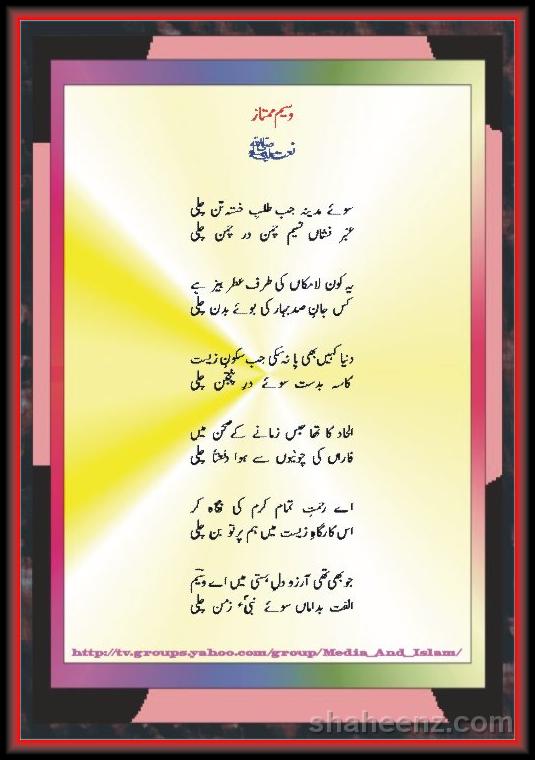 وسیم ممتاز
نعت ﷺ
سوئے مدینہ جب طلبِ خستہ تن چلی
عنبر فشاں نسیم چمن در چمن چلی
یہ کون لامکاں کی طرف عطر بیز ہے
کس جانِ صد بہار کی بوئے بدن چلی
دنیا کہیں بھی پا نہ سکی جب سکونِ زیست
کاسہ بدست سوئے درِ پنجتن چلی
الحاد کا تھا حبس زمانے کے صحن میں
فاراں کی چوٹیوں سے ہوا دفعتاً چلی
اے رحمتِ تمام کرم کی نگاہ کر
اس کارگاہِ زیست میں ہم پر تو بن چلی
جو بھی تھی آرزو دلِ ہستی میں اے وسیم
الفت بداماں سوئے نبیء زمن چلی
http://tv.groups.yahoo.com/group/Media_And_Islam/
shaheenz.com